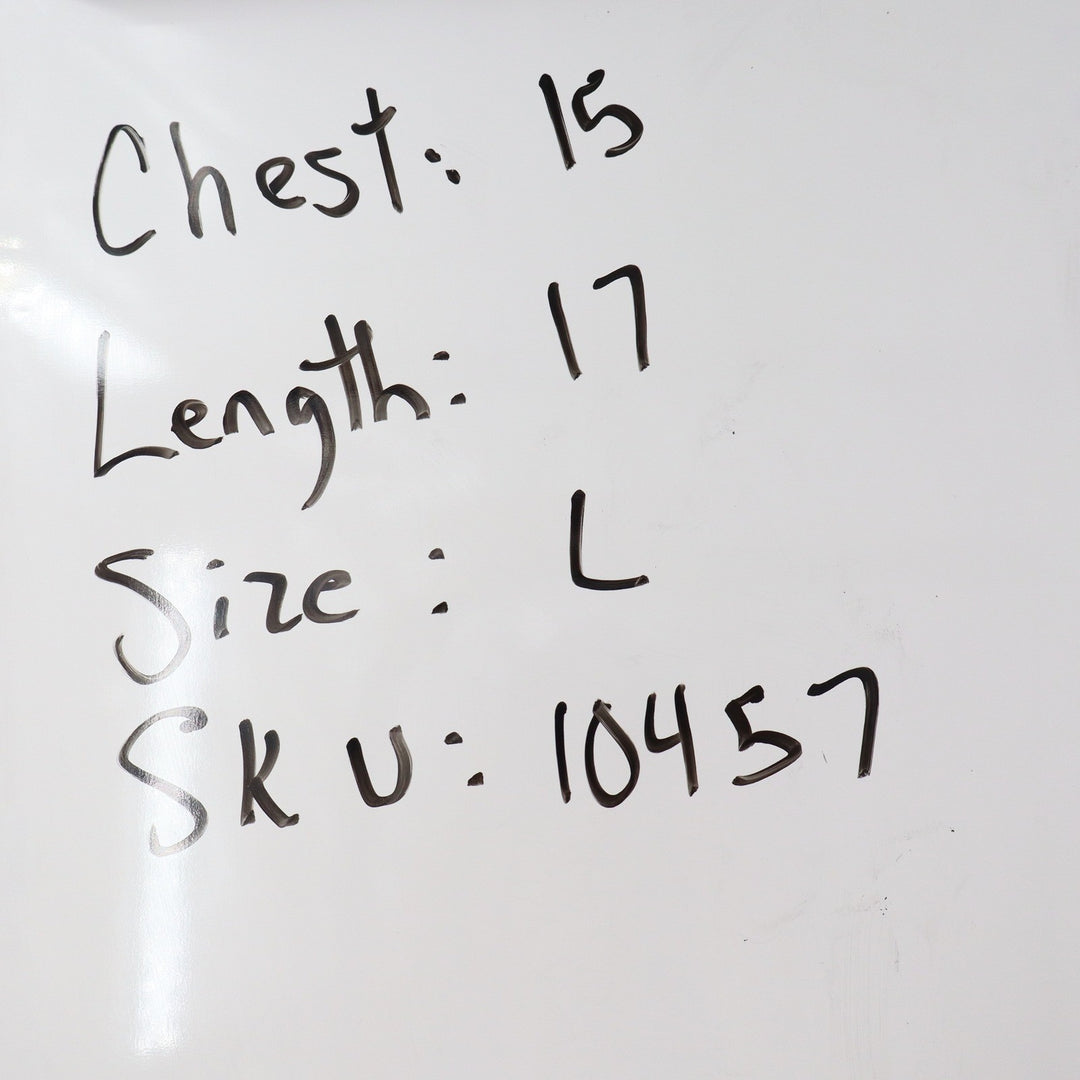 Chest: 15
Length: 17
Size: L
SKU: 10457